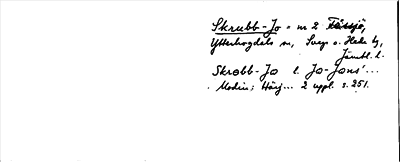 Skrubb-Jo = nr 2 Fåssjö,
Ytterhogdals sn, Svegs o. Hede tg,
Jämtl. l.
Skrobb-Jo l. Jo-Jons' ...
Modin; Härj... 2 uppl. s. 251.